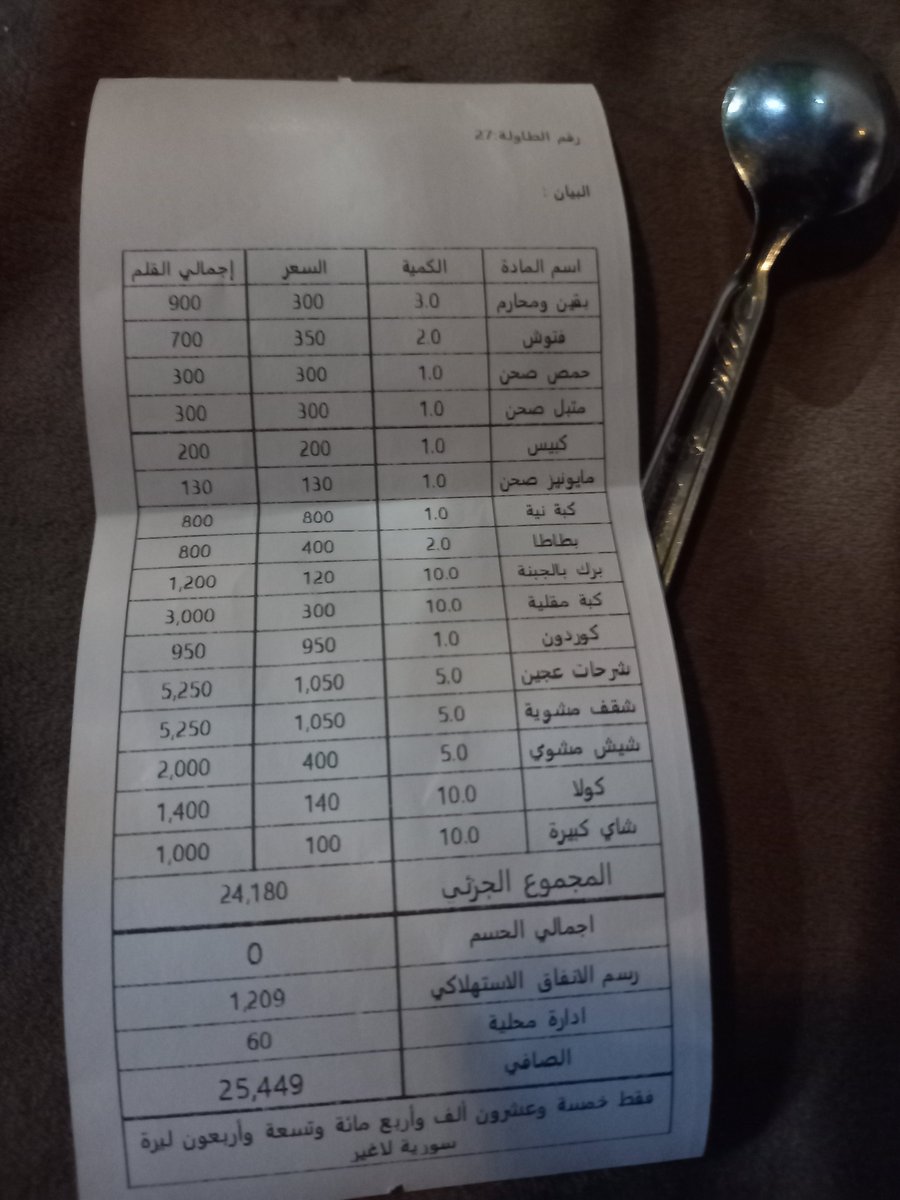 رقم الطاولة:27
البيان :
اسم المادة الكمية السعر إجمالي القلم
بقين ومحارم 3.0 300 900
فتوش 2.0 350 700
حمص صحن 1.0 300 300
متبل صحن 1.0 300 300
كبيس 1.0 200 200
مايونيز صحن 1.0 130 130
كبة نية 1.0 800 800
بطاطا 2.0 400 800
برك بالجبنة 10.0 120 1,200
كبة مقلية 10.0 300 3,000
كوردون 1.0 950 950
شرحات عجين 5.0 1,050 5,250
شقف مشوية 5.0 1,050 5,250
شيش مشوي 5.0 400 2,000
كولا 10.0 140 1,400
شاي كبيرة 10.0 100 1,000
المجموع الجزئي 24,180
اجمالي الحسم 0
رسم الانفاق الاستهلاكي 1,209
ادارة محلية 60
الصافي 25,449
فقط خمسة وعشرون ألف وأربع مائة وتسعة وأربعون ليرة
سورية لاغير